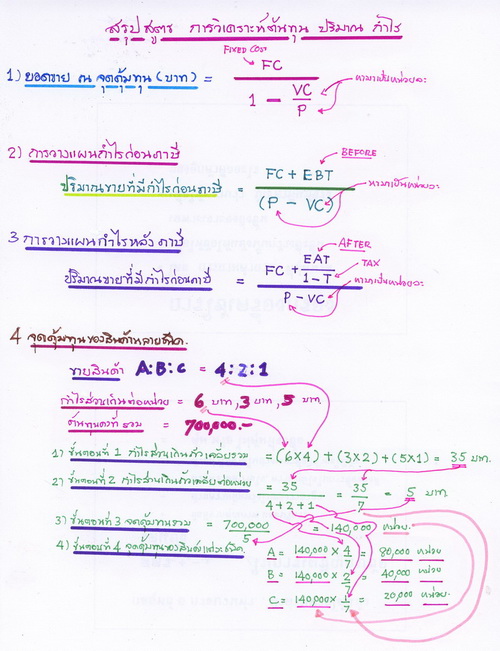 สรุปสูตร การวิเคราะห์ต้นทุน ปริมาณ กำไร
FIXED COST
1) ยอดขาย ณ จุดคุ้มทุน (บาท) = FC
1 - VC
P
หามาเป็นหน่วยละ
2) การวางแผนกำไรก่อนภาษี
BEFORE
ปริมาณขายที่มีกำไรก่อนภาษี = FC + EBT
(P - VC)
หามาเป็นหน่วยละ
3 การวางแผนกำไรหลังภาษี
AFTER
ปริมาณขายที่มีกำไรก่อนภาษี = FC + EAT
1-T
TAX
P - VC
หามาเป็นหน่วยละ
4 จุดคุ้มทุนของสินค้าหลายชนิด.
ขายสินค้า A:B:C = 4:2:1
กำไรส่วนเกินต่อหน่วย = 6 บาท, 3 บาท, 5 บาท
ต้นทุนคงที่รวม = 700,000.-
1) ขั้นตอนที่ 1 กำไรส่วนเกินถัวเฉลี่ยรวม = (6x4) + (3x2) + (5x1) = 35 บาท.
2) ขั้นตอนที่ 2 กำไรส่วนเกินถัวเฉลี่ยต่อหน่วย = 35 = 35 = 5 บาท.
4+2+1 7
3) ขั้นตอนที่ 3 จุดคุ้มทุนรวม = 700,000 = 140,000 หน่วย.
5
4) ขั้นตอนที่ 4 จุดคุ้มทุนของสินค้าแต่ละชนิด.
A = 140,000 x 4/7 = 80,000 หน่วย
B = 140,000 x 2/7 = 40,000 หน่วย
C = 140,000 x 1/7 = 20,000 หน่วย.